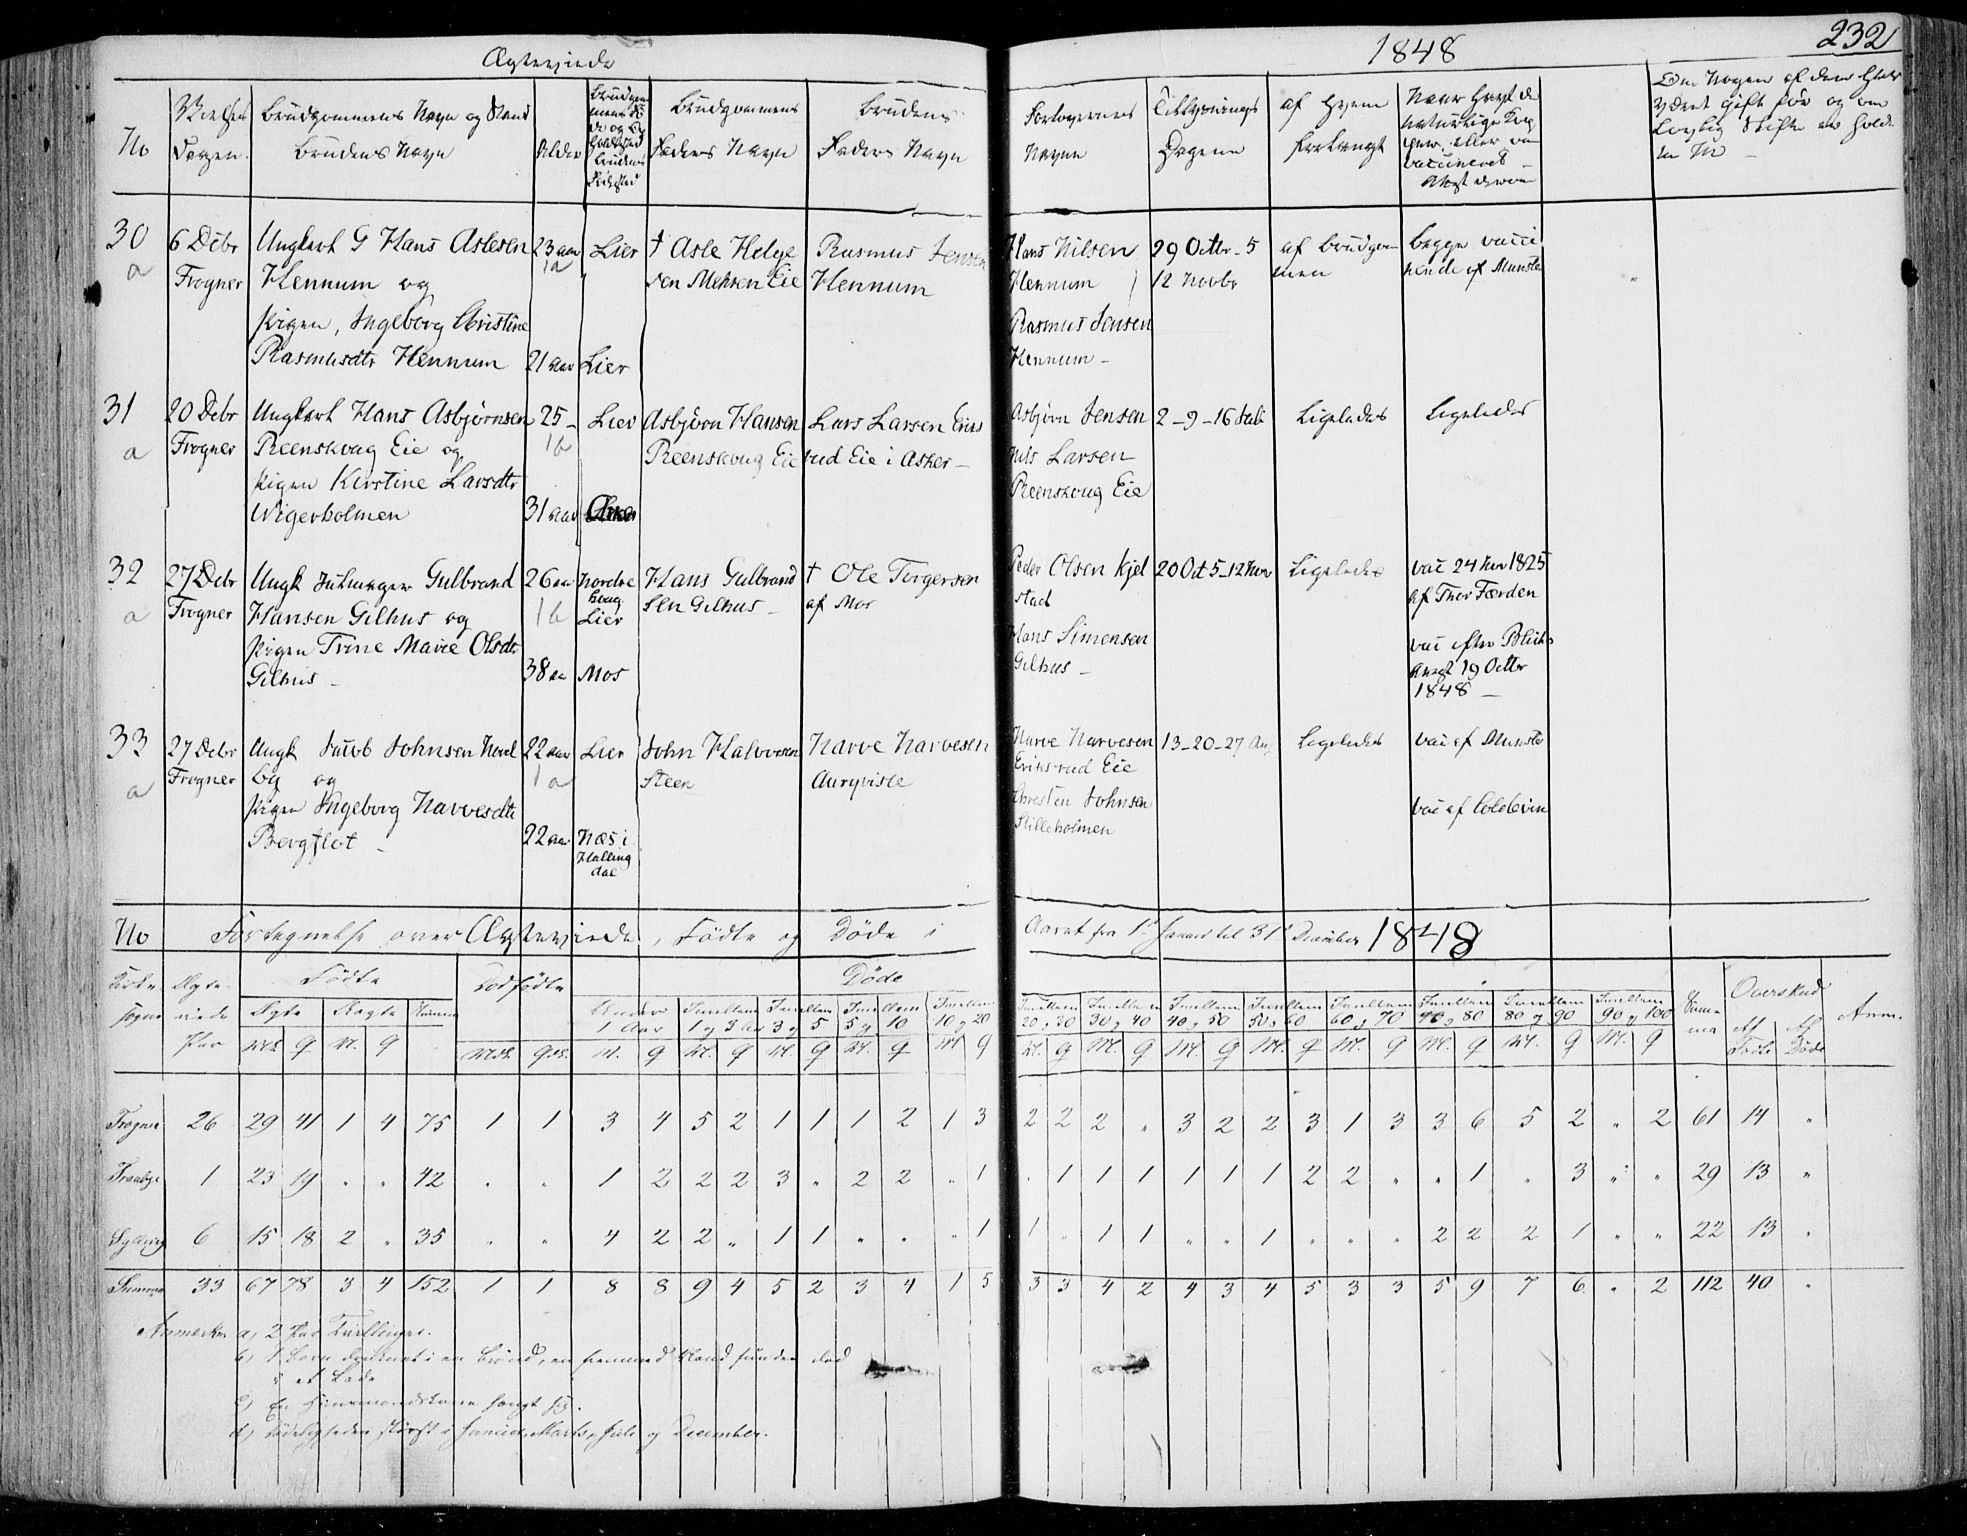 Ægteviede
1848
232
No
Vielses
Dagen
Brudgommens Navn og Stand
Brudens Navn
Alder
Brudgommens
Faders Navn
Brudens
Faders Navn
Forlovernes
Navne
Tillysnings
Dagene
af Hvem
forlangt
30
a
6 Debr
Frogner
Ungkarl G Hans Aslesen
Hennum og
Pigen, Ingeborg Christine
Rasmusdtr Hennum
23 aar
1a
21 aar
Lier
Lier
† Asle Helge
sen Mehren Eie
Rasmus Jensen
Hennum
Hans Nilsen
Hennum
Rasmus Jensen
Hennum –
29 Octbr - 5
12 Novbr
af Brudgom
men
begge vacci
nerede af Munster
31
a
20 Debr
Frogner
Ungkarl Hans Asbjørnsen
Reenskoug Eie og
Pigen Kirstine Larsdtr
Wigerholmen
25 –
1b
31 aar
Lier
Asker
Asbjørn Hansen
Reenskoug Eie
Lars Larsen Eriks
rud Eie i Asker –
Asbjørn Jensen
Nils Larsen
Reenskoug Eie
2 – 9 – 16 Juli
Ligeledes
Ligeledes
32
a
27 Debr
Frogner
Ungk Gulbrand
Hansen Gilhus og
Pigen Trine Marie Olsdtr
Gilhus –
26 aa
1b
38 aa
Nordre
Lier
Mos
Hans Gulbrand
sen Gilhus –
† Ole Torgersen
af Mos
Peder Olsen Kjel
stad
Hans Simensen
Gilhus –
20 Oct 5–12 Nov
Ligeledes
vac 24 Nov 1825
af Thor Færden
vac efter
Attest 19 Octbr
1848 –
33
a
27 Debr
Frogner
Ungk Jacob Johnsen Nord
by og
Pigen Ingeborg Narvesdtr
Bergflot –
22 aar
1a
22 aar
Lier
Næs i
Halling
dal
John Halvorsen
Steen
Narve Narvesen
Narve Narvesen
Eriksrud Eie
Christen Johnsen
Stilleholmen
13 – 20 – 27 Aug
Ligeledes
vac af Munster
vac af Coldevin
No Fortegnelse over Ægteviede, Fødte og Døde i Aaret fra 1 Januar til 31 December 1848
Kirke-
sogne
Ægte-
viede
Par
Fødte
Ægte
Uægte
Summa
Dødfødte
Døde
Under
1 Aar
Imellem
1 og 3 Aar
Imellem
3 og 5
Imellem
5 og 10
Imellem
10 og 20
Imellem
20 og 30
Imellem
30 og 40
Imellem
40 og 50
Imellem
50 og 60
Imellem
60 og 70
Imellem
70 og 80
Imellem
80 og 90
Imellem
90 og 100
Summa
Overskud
Af
Fødte
Af
Døde
Anm.
Frogner 26 29 41 1 4 75 1 1 3 4 5 2 1 1 1 2 1 3 2 2 2 „ 3 2 2 3 1 3 3 6 5 2 „ 2 61 14 „
Tranby 1 23 19 „ „ 42 „ „ 1 2 2 2 3 „ 2 2 „ 1 „ 1 1 1 1 1 1 2 2 „ „ 1 „ 3 „ „ 29 13 „
Sylling 6 15 18 2 „ 35 „ „ 4 2 2 „ 1 1 „ „ „ 1 1 „ 1 1 „ „ 1 „ „ „ 2 2 2 1 „ „ 22 13 „
Summa 33 67 78 3 4 152 1 1 8 8 9 4 5 2 3 4 1 5 3 3 4 2 4 3 4 5 3 3 5 9 7 6 „ 2 112 40 „
a) 2 Par Tvillinger.
b) 1 Barn druknet i en Brønd, en fremmed Mand funden død
i et Lade
c) En Huusmandskone hængt sig.
d) Dødeligheden størst i Januar, Marts, Juli og December.